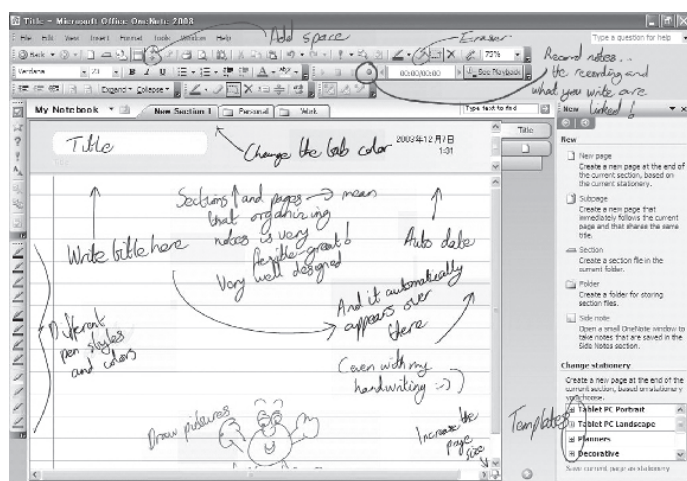 Title - Microsoft Office OneNote 2003
File Edit View Insert Format Tools Window Help
Type a question for help
Add space
Eraser
Back
75%
Verdana
B I U
00:00/00:00
See Playback
Record notes...
the recording and
what you write are
linked!
Expand Collapse
My Notebook
New Section 1
Personal
Work
Type text to find
Title
Change the tab color
2003年12月7日
1:01
Title
Sections and pages → mean
that organizing
notes is very
flexible - great!
Very well designed
Write title here
Auto date
And it automatically
appears over
there
Different
pen styles
and colors
(even with my
handwriting :-))
Draw pictures
Increase the
page
size
Templates
New
New
New page
Create a new page at the end of
the current section, based on
the current stationery.
Subpage
Create a new page that
immediately follows the current
page and that shares the same
title.
Section
Create a section file in the
current folder.
Folder
Create a folder for storing
section files.
Side note
Open a small OneNote window to
take notes that are saved in the
Side Notes section.
Change stationery
Create a new page at the end of the
current section, based on stationery
you choose.
Tablet PC Portrait
Tablet PC Landscape
Planners
Decorative
Save current page as stationery